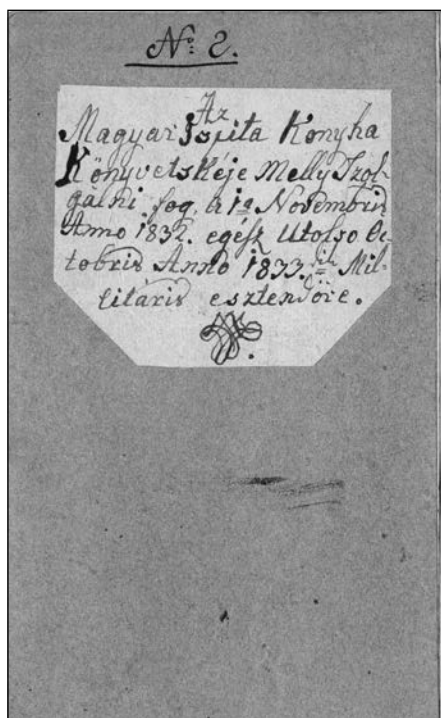 No: 2.
Az
Magyar Ispita Konyha
Könyvetskéje Melly Szol-
gálni fog, a 1a Novembris
Anno 1832. egész Utolso Oc-
tobris Anno 1833. Mil-
litáris esztendőre.